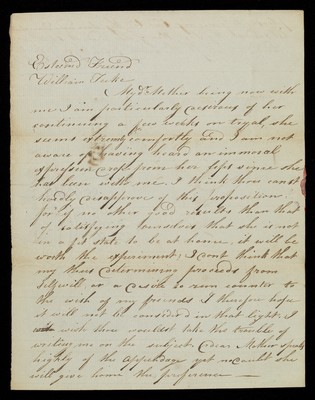 Esteem'd Friend
William Tuke
My Dr Mother being now with
me I am particularly desirous of her
continuing a few weeks on tryal, she
seems extremely comfortly and I am not
aware of having heard an immoral
expression escape from her lips since she
has been with me. I think thou canst
hardly disapprove of this proposition
for if no other good results than that
of satisfying ourselves that she is not
in a fit state to be at home, it will be
worth the experiment; I cant think that
my thus determining proceeds from
Selfwill, or a desire to run counter to
the wish of my friends I therefore hope
it will not be considered in that light; I
wish thou wouldst take the trouble of
writing me on the subject. Dear Mother speaks
highly of the Appendage yet no doubt she
will give home the preference